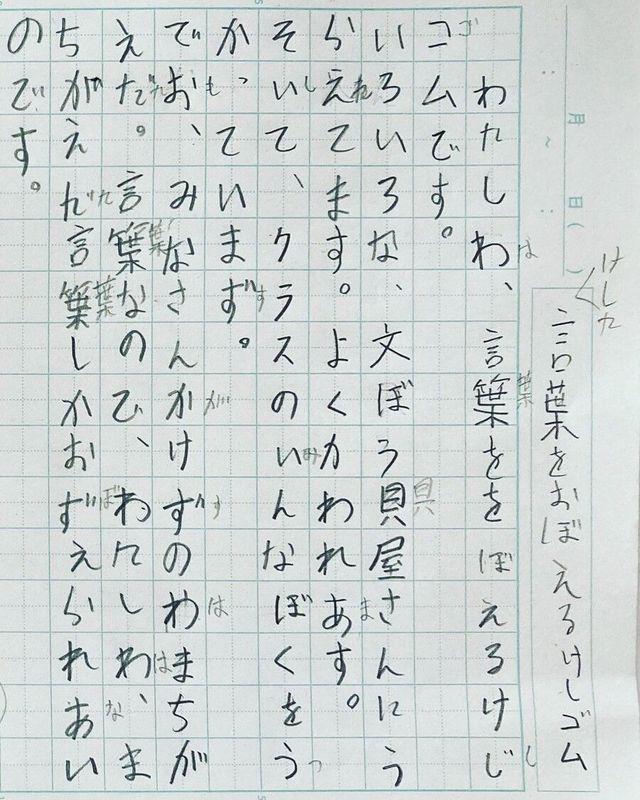 月 日( )
: ~ :
けした
言葉をおぼえるけしゴム
わたしわ、言葉をを ぼえるけじ
は 葉 し
コムです。
ゴ
いろいろな、文ぼう貝屋さんにう
具
らえてます。よくかわれあす。
れ ま
そいて、クラスのいんなぼくをう
し み つ
かっていまず。
す
でお、みなさんかけずのわまちが
も が す は
えだ。言葉なので、わたしわ、ま
た 葉 は
ちがえだ言葉しかおずえられあい
た 葉 ぼ な
のです。